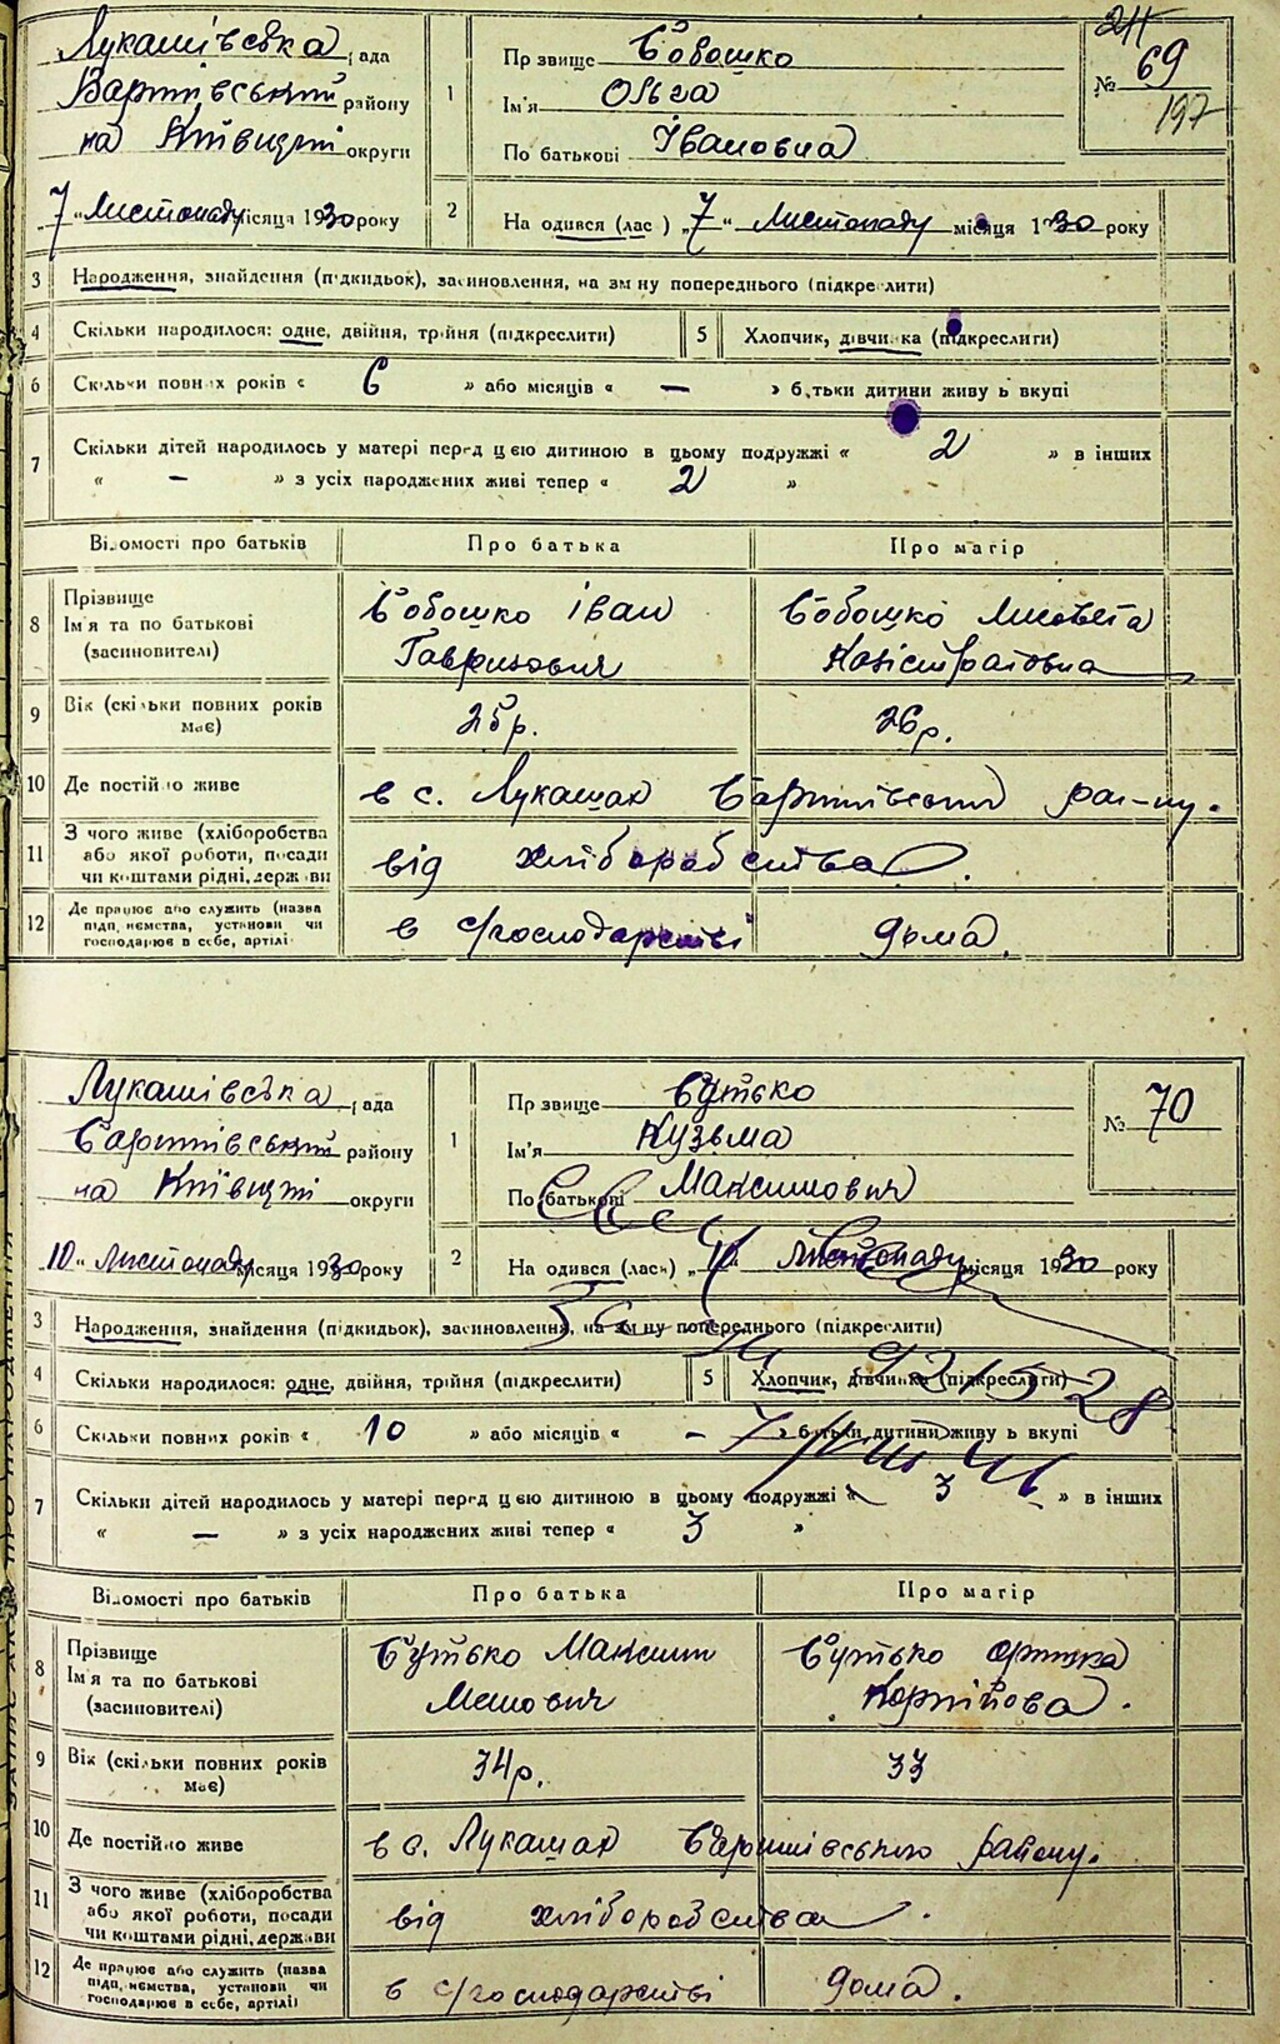 211
Лукашівська рада
Баришівський району
на Київщині округи
„7" Листопаду місяця 1930 року
1
Прізвище Бобошко
Ім'я Ольга
По батькові Івановна
№ 69
197
2
На одився (лас ) „7" Листопаду місяця 1930 року
3 Народження, знайдення (підкидьок), засиновлення, на зм ну попереднього (підкреслити)
4 Скільки народилося: одне, двійня, трійня (підкреслити) 5 Хлопчик, дівчинка (підкреслити)
6 Скільки повних років « 6 » або місяців « — » батьки дитини живу ь вкупі
7 Скільки дітей народилось у матері перед цею дитиною в цьому подружжі « 2 » в інших
« — » з усіх народжених живі тепер « 2 »
Відомості про батьків Про батька Про матір
8 Прізвище Ім'я та по батькові (засиновителі)
Бобошко Іван
Гаврилович
Бобошко Лисовета
Калістратовна
9 Вік (скільки повних років має) 25р. 26р.
10 Де постійно живе в с. Лукашах Баришівський рай-ну.
11 З чого живе (хліборобства
або якої роботи, посади
чи коштами рідні, держави
від хліборобства.
12 Де працює або служить (назва
підприємства, установи чи
господарює в себе, артілі
в с/господарстві дома.
Лукашівська рада
Баришівський району
на Київщині округи
„10" Листопаду місяця 1930 року
1
Прізвище Бутько
Ім'я Кузьма
По батькові Максимович
№ 70
2
На одився (лася) „10" Листопаду місяця 1930 року
3 Народження, знайдення (підкидьок), засиновлення, на зм ну попереднього (підкреслити)
4 Скільки народилося: одне, двійня, трійня (підкреслити) 5 Хлопчик, дівчинка (підкреслити)
6 Скільки повних років « 10 » або місяців « — » батьки дитини живу ь вкупі
7 Скільки дітей народилось у матері перед цею дитиною в цьому подружжі « 3 » в інших
« — » з усіх народжених живі тепер « 3 »
Відомості про батьків Про батька Про матір
8 Прізвище Ім'я та по батькові (засиновителі)
Бутько Максим
Бутько
9 Вік (скільки повних років має) 34р. 33
10 Де постійно живе в с. Лукашах Баришівського району.
11 З чого живе (хліборобства
або якої роботи, посади
чи коштами рідні, держави
від хліборобства.
12 Де працює або служить (назва
підприємства, установи чи
господарює в себе, артілі)
в с/господарстві дома.